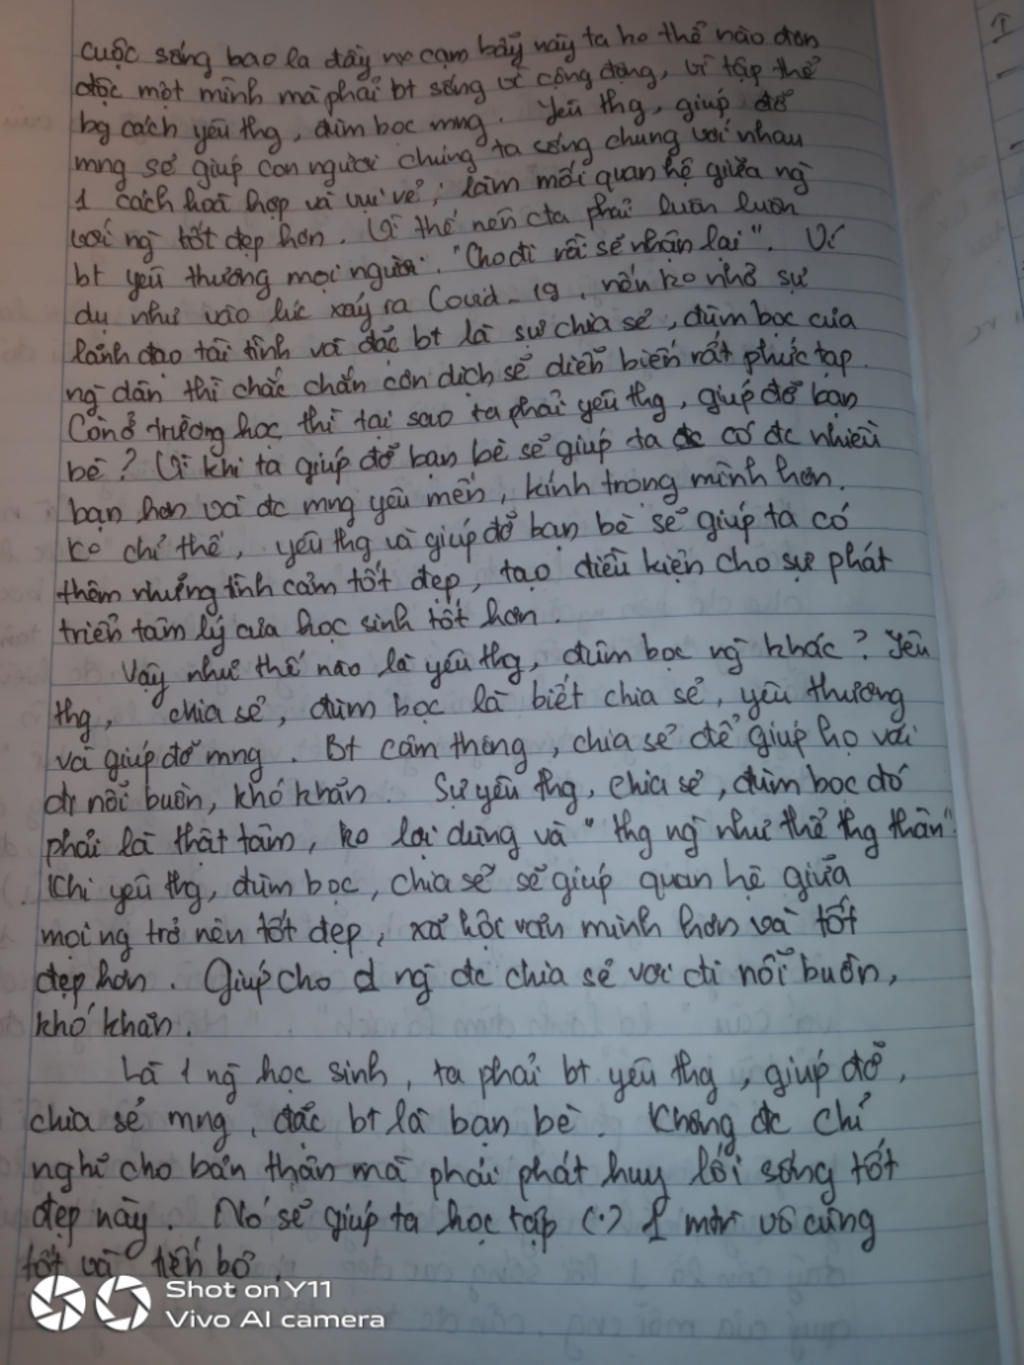 cuộc sống bao la đầy rẫy cạm bẫy này ta ko thể nào đơn
độc một mình mà phải bt sống vì cộng đồng, vì tập thể
bg cách yêu thg, đùm bọc mng. Yêu thg, giúp đỡ
mng sẽ giúp con người chúng ta sống chung với nhau
1 cách hoà hợp và vui vẻ, làm mối quan hệ giữa ng
với ng tốt đẹp hơn. Vì thế nên cta phải luôn luôn
bt yêu thương mọi người. "Cho đi rồi sẽ nhận lại". Ví
dụ như vào lúc xảy ra Covid-19, nếu ko nhờ sự
lãnh đạo tài tình và đặc bt là sự chia sẻ, đùm bọc của
ng dân thì chắc chắn cơn dịch sẽ diễn biến rất phức tạp.
Còn ở trường học thì tại sao ta phải yêu thg, giúp đỡ bạn
bè? Vì khi ta giúp đỡ bạn bè sẽ giúp ta có đc nhiều
bạn hơn và đc mng yêu mến, kính trọng mình hơn.
Ko chỉ thế, yêu thg và giúp đỡ bạn bè sẽ giúp ta có
thêm những tình cảm tốt đẹp, tạo điều kiện cho sự phát
triển tâm lý của học sinh tốt hơn.
Vậy như thế nào là yêu thg, đùm bọc ng khác? Yêu
thg, chia sẻ, đùm bọc là biết chia sẻ, yêu thương
và giúp đỡ mng. Bt cảm thông, chia sẻ để giúp họ vơi
đi nỗi buồn, khó khăn. Sự yêu thg, chia sẻ, đùm bọc đó
phải là thật tâm, ko lợi dụng và "thg ng như thể thg thân".
Khi yêu thg, đùm bọc, chia sẻ sẽ giúp quan hệ giữa
mọi ng trở nên tốt đẹp, xã hội văn minh hơn và tốt
đẹp hơn. Giúp cho ng đc chia sẻ vơi đi nỗi buồn,
khó khăn.
Là 1 ng học sinh, ta phải bt yêu thg, giúp đỡ,
chia sẻ mng, đặc bt là bạn bè. Không đc chỉ
nghĩ cho bản thân mà phải phát huy lối sống tốt
đẹp này. Nó sẽ giúp ta học tập (.) 1 mtr vô cùng
tốt và tiến bộ.
Shot on Y11
Vivo AI camera